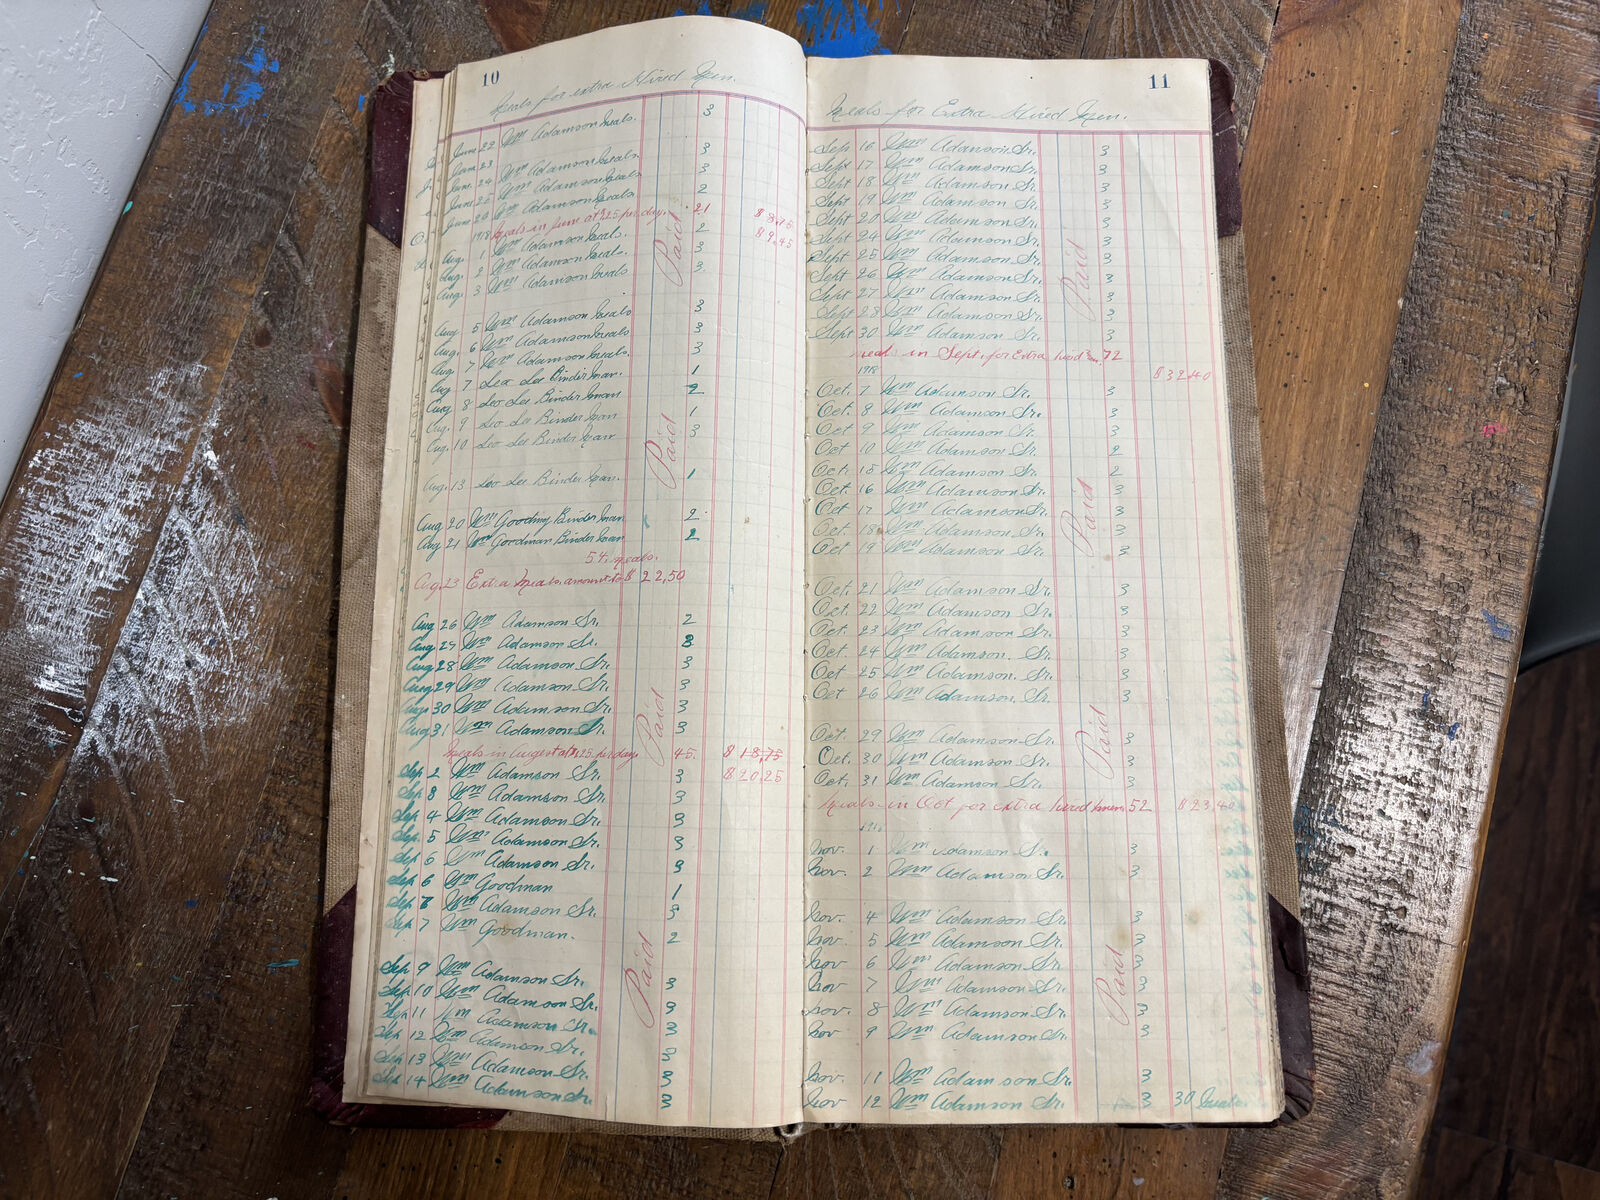 10
Meals for extra Hired Men.
June 22 Wm Adamson Meals. 3
June 23
June 24 Wm Adamson Meals 3
June 25 Wm Adamson Meals 3
June 26 Wm Adamson Meals 2
1918 Meals in June at $1.25 per day. 21 $ 8.75
$ 9.45
Aug. 1 Wm Adamson Meals. 2
Aug. 2 Wm Adamson Meals. 3
Aug. 3 Wm Adamson Meals 3
Aug 5 Wm Adamson Meals 3
Aug. 6 Wm Adamson Meals 3
Aug. 7 Wm Adamson Meals. 3
Aug 7 Leo Lee Binder Man. 1
Aug. 8 Leo Lee Binder Man 2
Aug. 9 Leo Lee Binder Man 1
Aug. 10 Leo Lee Binder Man 3
Aug. 13 Leo Lee Binder Man. 1
Aug 20 Wm Binder Man 2
Aug 21 Wm Goodman Binder Man 2
54 Meals.
Aug. 23 Extra Meals amount to $ 22,50
Aug 26 Wm Adamson Sr. 2
Aug. 27 Wm Adamson Sr. 3
Aug 28 Wm Adamson Sr. 3
Aug 29 Wm Adamson Sr. 3
Aug. 30 Wm Adamson Sr. 3
Aug 31 Wm Adamson Sr. 3
Meals in August at $1.25 per day 45. $ 18.75
Sep 2 Wm Adamson Sr. 3 $ 20.25
Sep 3 Wm Adamson Sr. 3
Sep 4 Wm Adamson Sr. 3
Sep. 5 Wm Adamson Sr. 3
Sep 6 Wm Adamson Sr. 3
Sep 6 Wm Goodman 1
Sep 7 Wm Adamson Sr. 3
Sep. 7 Wm Goodman. 2
Sep 9 Wm Adamson Sr. 3
Sep. 10 Wm Adamson Sr. 3
Sep 11 Wm Adamson Sr. 3
Sep 12 Wm Adamson Sr. 3
Sep 13 Wm Adamson Sr. 3
Sep 14 Wm Adamson Sr. 3
Paid
Paid
Paid
Paid
11
Meals for Extra Hired Men.
Sep 16 Wm Adamson Sr. 3
Sept 17 Wm Adamson Sr. 3
Sept 18 Wm Adamson Sr. 3
Sept 19 Wm Adamson Sr. 3
Sept 20 Wm Adamson Sr. 3
Sept 24 Wm Adamson Sr. 3
Sept 25 Wm Adamson Sr. 3
Sept 26 Wm Adamson Sr. 3
Sept 27 Wm Adamson Sr. 3
Sept 28 Wm Adamson Sr. 3
Sept 30 Wm Adamson Sr. 3
Meals in Sept. for Extra hired men 72
1918 $ 32.40
Oct. 7 Wm Adamson Sr. 3
Oct. 8 Wm Adamson Sr. 3
Oct 9 Wm Adamson Sr. 3
Oct 10 Wm Adamson Sr. 2
Oct. 15 Wm Adamson Sr. 2
Oct. 16 Wm Adamson Sr. 3
Oct 17 Wm Adamson Sr. 3
Oct. 18 Wm Adamson Sr. 3
Oct 19 Wm Adamson Sr. 3
Oct. 21 Wm Adamson Sr. 3
Oct. 22 Wm Adamson Sr. 3
Oct. 23 Wm Adamson Sr. 3
Oct. 24 Wm Adamson. Sr. 3
Oct 25 Wm Adamson Sr. 3
Oct 26 Wm Adamson Sr. 3
Oct. 29 Wm Adamson Sr. 3
Oct. 30 Wm Adamson Sr. 3
Oct. 31 Wm Adamson Sr. 3
Meals in Oct for extra hired men 52 $ 23.40
Nov. 1 Wm Adamson Sr. 3
Nov. 2 Wm Adamson Sr. 3
Nov. 4 Wm Adamson Sr. 3
Nov. 5 Wm Adamson Sr. 3
Nov 6 Wm Adamson Sr. 3
Nov 7 Wm Adamson Sr. 3
Nov. 8 Wm Adamson Sr. 3
Nov 9 Wm Adamson Sr. 3
Nov. 11 Wm Adamson Sr. 3
Nov 12 Wm Adamson Sr. 3 30 Meals
Paid
Paid
Paid
Paid